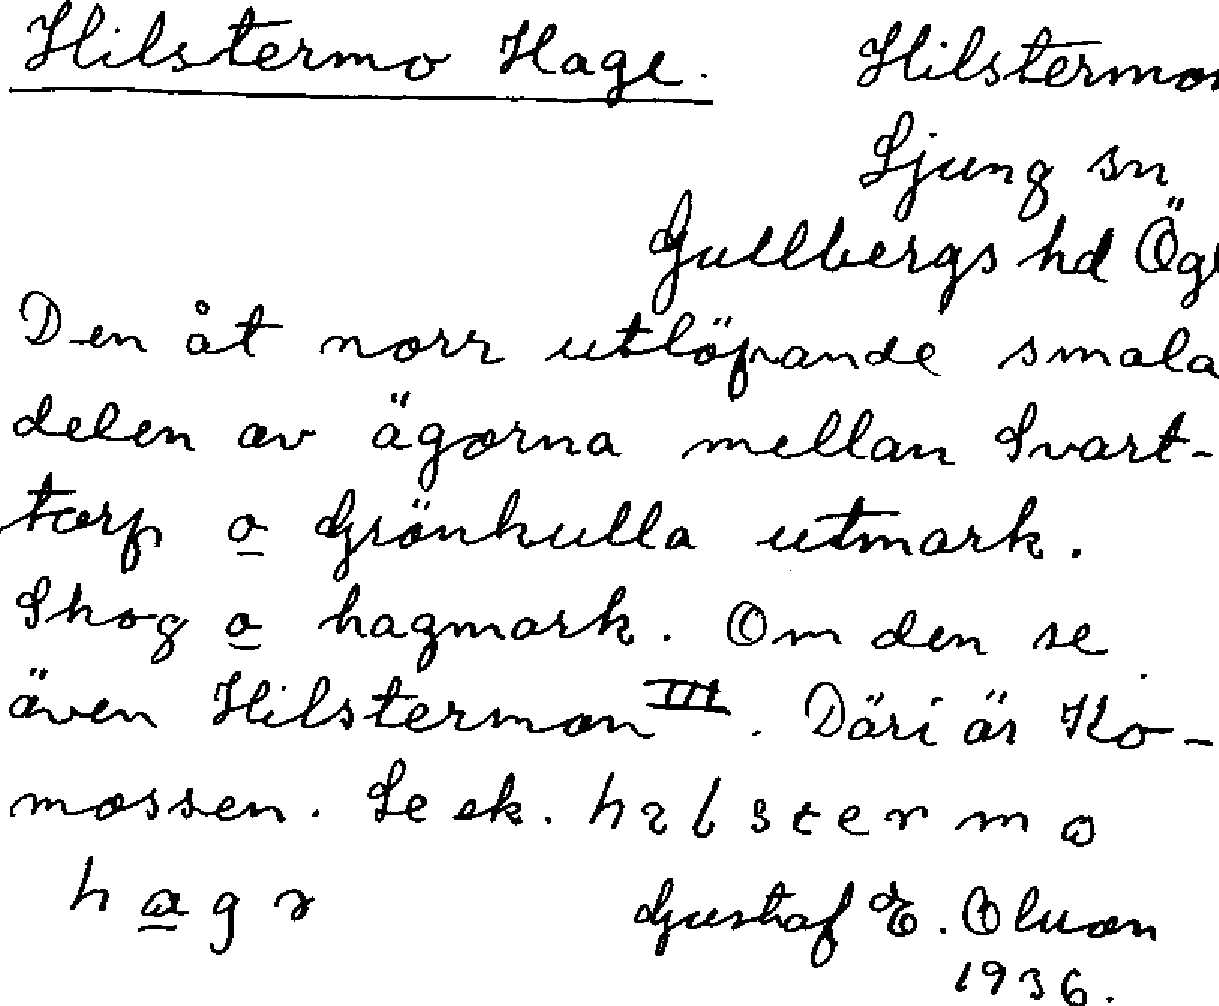 Hilstermo Hage. Hilstermon
Ljung sn
Gullbergs hd Ög
Den åt norr utlöpande smala
delen av ägorna mellan Svart-
torp o Grönkulla utmark.
Skog o hagmark. Om den se
även Hilstermon III. Däri är Ko-
mossen. Se ek.
Gustaf E. Olson
1936.